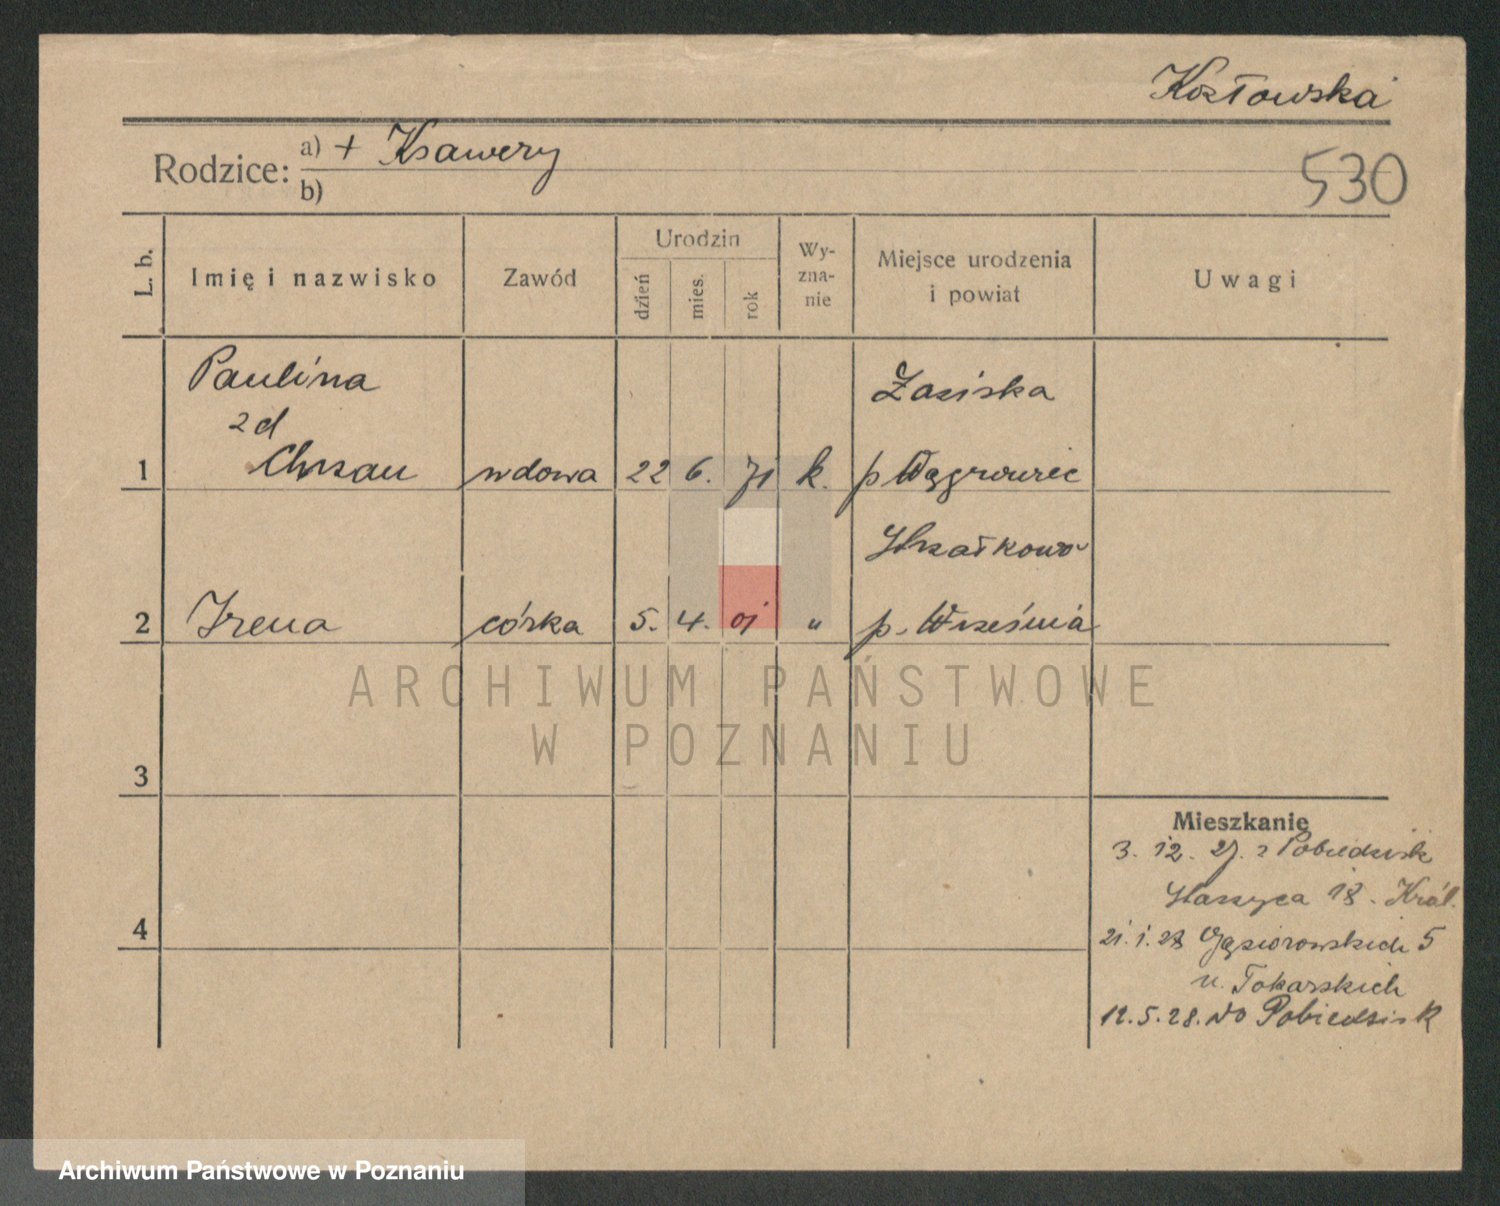 Kozłowska
Rodzice: a) + Ksawery
b)
530
L. b.
Imię i nazwisko
Zawód
Urodzin
dzień
mies.
rok
Wy-
zna-
nie
Miejsce urodzenia
i powiat
Uwagi
Paulina
zd
1 Chrzan wdowa 22 6. 71 k.
Zasiska
p Wągrowiec
2 Irena córka 5. 4. 01 "
Strzałkowo
p. Września
3
4
Mieszkanie
3. 12. 27. z Pobiedzisk
Staszyca 18. Król.
21. 1. 28 Gąsiorowskich 5
u. Tokarskich
12. 5. 28. do Pobiedzisk
ARCHIWUM PAŃSTWOWE
W POZNANIU
Archiwum Państwowe w Poznaniu